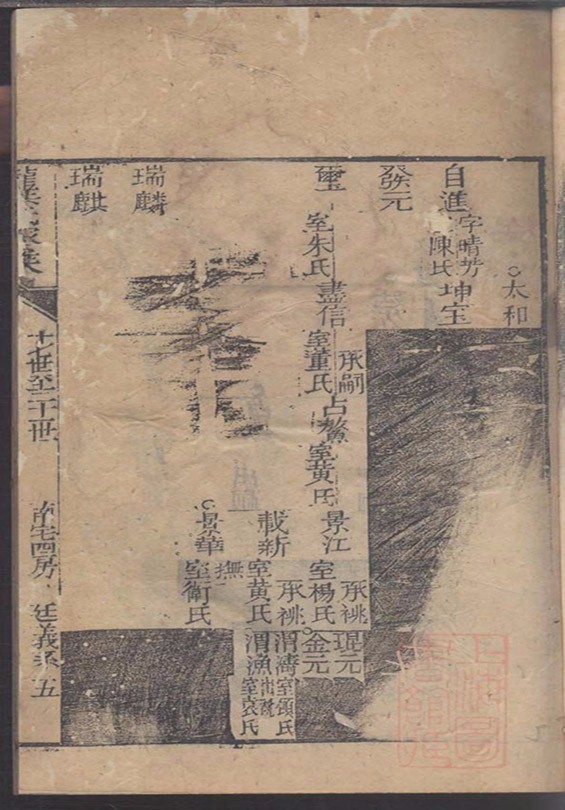 太和
自進 字晴芳
室陳氏坤宝
發元
璽 室朱氏 盡信 室董氏 承嗣 占鰲 室黃氏 景江 室楊氏 承祧 琨元
金元
載新 室黃氏 承祧 渭濤 室頌氏
渭漁 出嗣 室袁氏
景華 撫 室衛氏
瑞麟
瑞麒
十七世至二十世 南宅四房 廷義系 五